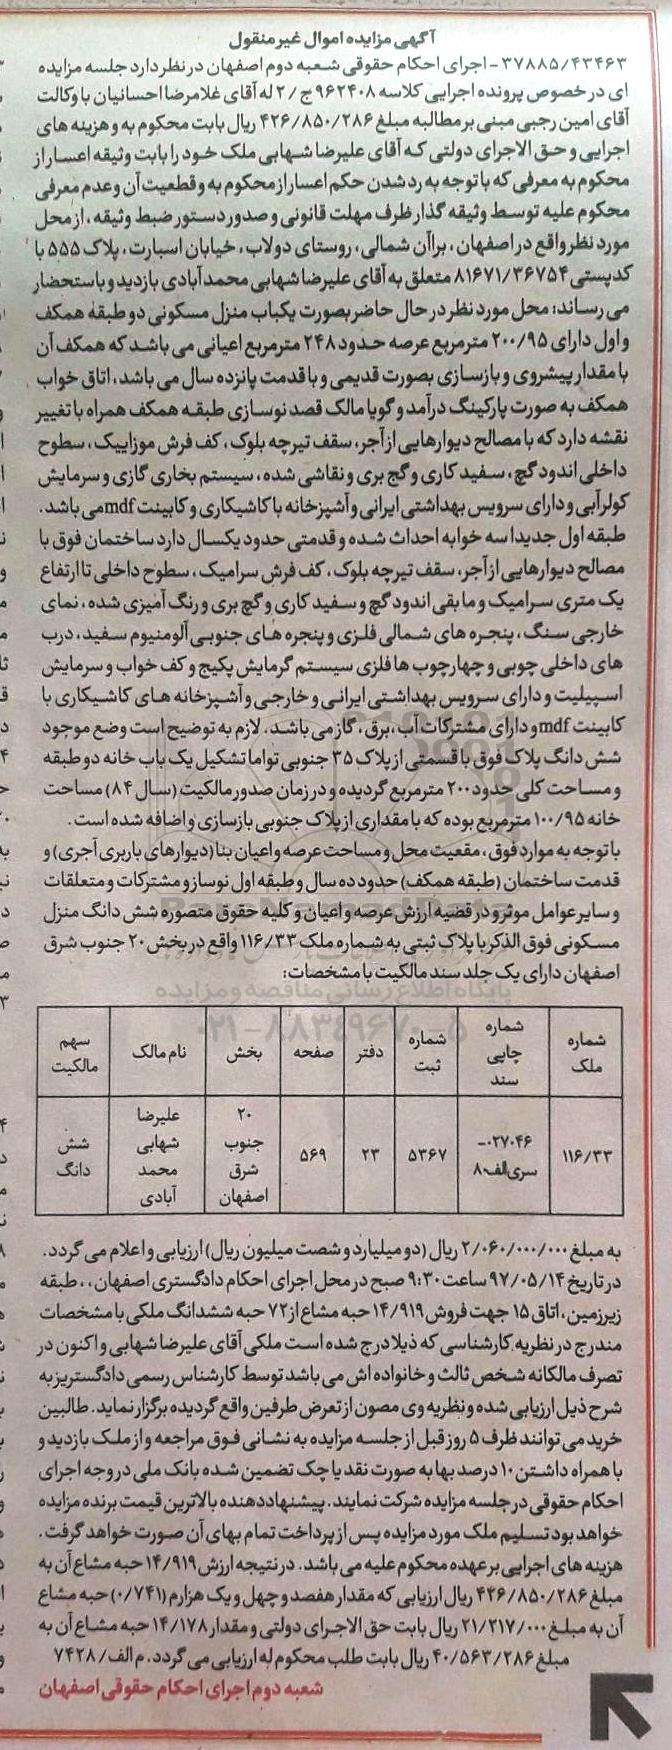 آگهی مزایده اموال غیر منقول
۳۷۸۸۵/۴۳۴۶۳- اجرای احکام حقوقی شعبه دوم اصفهان در نظر دارد جلسه مزایده
ای در خصوص پرونده اجرایی کلاسه ۹۶۲۴۰۸ ج/۲ له آقای غلامرضا احسانیان با وکالت
آقای امین رجبی مبنی بر مطالبه مبلغ ۴۲۶/۸۵۰/۲۸۶ ریال بابت محکوم به و هزینه های
اجرایی و حق الاجرای دولتی که آقای علیرضا شهابی ملک خود را بابت وثیقه اعسار از
محکوم به معرفی که با توجه به رد شدن حکم اعسار از محکوم به و قطعیت آن و عدم معرفی
محکوم علیه توسط وثیقه گذار ظرف مهلت قانونی و صدور دستور ضبط وثیقه، از محل
مورد نظر واقع در اصفهان، براآن شمالی، روستای دولاب، خیابان اسبارت، پلاک ۵۵۵ با
کدپستی ۸۱۶۷۱/۳۶۷۵۴ متعلق به آقای علیرضا شهابی محمدآبادی بازدید و باستحضار
می رساند: محل مورد نظر در حال حاضر بصورت یکباب منزل مسکونی دو طبقه همکف
و اول دارای ۲۰۰/۹۵ مترمربع عرصه حدود ۲۴۸ مترمربع اعیانی می باشد که همکف آن
با مقدار پیشروی و بازسازی بصورت قدیمی و با قدمت پانزده سال می باشد، اتاق خواب
همکف به صورت پارکینگ درآمد و گویا مالک قصد نوسازی طبقه همکف همراه با تغییر
نقشه دارد که با مصالح دیوارهایی از آجر، سقف تیرچه بلوک، کف فرش موزاییک، سطوح
داخلی اندود گچ، سفید کاری و گچ بری و نقاشی شده، سیستم بخاری گازی و سرمایش
کولرآبی و دارای سرویس بهداشتی ایرانی و آشپزخانه با کاشیکاری و کابینت mdf می باشد.
طبقه اول جدیدا سه خوابه احداث شده و قدمتی حدود یکسال دارد ساختمان فوق با
مصالح دیوارهایی از آجر، سقف تیرچه بلوک، کف فرش سرامیک، سطوح داخلی تا ارتفاع
یک متری سرامیک و مابقی اندود گچ و سفید کاری و گچ بری و رنگ آمیزی شده، نمای
خارجی سنگ، پنجره های شمالی فلزی و پنجره های جنوبی آلومنیوم سفید، درب
های داخلی چوبی و چهارچوب ها فلزی سیستم گرمایش پکیج و کف خواب و سرمایش
اسپیلیت و دارای سرویس بهداشتی ایرانی و خارجی و آشپزخانه های کاشیکاری با
کابینت mdf و دارای مشترکات آب، برق، گاز می باشد. لازم به توضیح است وضع موجود
شش دانگ پلاک فوق با قسمتی از پلاک ۳۵ جنوبی تواما تشکیل یک باب خانه دو طبقه
و مساحت کلی حدود ۲۰۰ مترمربع گردیده و در زمان صدور مالکیت (سال ۸۴) مساحت
خانه ۱۰۰/۹۵ مترمربع بوده که با مقداری از پلاک جنوبی بازسازی و اضافه شده است.
با توجه به موارد فوق، مقعیت محل و مساحت عرصه و اعیان بنا (دیوارهای باربری آجری) و
قدمت ساختمان (طبقه همکف) حدود ده سال و طبقه اول نوساز و مشترکات و متعلقات
و سایر عوامل موثر و در قضیه ارزش عرصه و اعیان و کلیه حقوق متصوره شش دانگ منزل
مسکونی فوق الذکر با پلاک ثبتی به شماره ملک ۱۱۶/۳۳ واقع در بخش ۲۰ جنوب شرق
اصفهان دارای یک جلد سند مالکیت با مشخصات:
پایگاه اطلاع رسانی مناقصه و مزایده
۰۲۱-۸۸۳۴۹۶۷۰-۵
شماره ملک | شماره چاپی سند | شماره ثبت | دفتر | صفحه | بخش | نام مالک | سهم مالکیت
۱۱۶/۳۳ | ۰۲۷۰۴۶- سری الف۸ | ۵۳۶۷ | ۲۳ | ۵۶۹ | ۲۰ جنوب شرق اصفهان | علیرضا شهابی محمد آبادی | شش دانگ
به مبلغ ۲/۰۶۰/۰۰۰/۰۰۰ ریال (دو میلیارد و شصت میلیون ریال) ارزیابی و اعلام می گردد.
در تاریخ ۹۷/۰۵/۱۴ ساعت ۹:۳۰ صبح در محل اجرای احکام دادگستری اصفهان،، طبقه
زیرزمین، اتاق ۱۵ جهت فروش ۱۴/۹۱۹ حبه مشاع از ۷۲ حبه ششدانگ ملکی با مشخصات
مندرج در نظریه کارشناسی که ذیلا درج شده است ملکی آقای علیرضا شهابی و اکنون در
تصرف مالکانه شخص ثالث و خانواده اش می باشد توسط کارشناس رسمی دادگستری به
شرح ذیل ارزیابی شده و نظریه وی مصون از تعرض طرفین واقع گردیده برگزار نماید. طالبین
خرید می توانند ظرف ۵ روز قبل از جلسه مزایده به نشانی فوق مراجعه و از ملک بازدید و
با همراه داشتن ۱۰ درصد بها به صورت نقد یا چک تضمین شده بانک ملی در وجه اجرای
احکام حقوقی در جلسه مزایده شرکت نمایند. پیشنهاد دهنده بالاترین قیمت برنده مزایده
خواهد بود تسلیم ملک مورد مزایده پس از پرداخت تمام بهای آن صورت خواهد گرفت.
هزینه های اجرایی بر عهده محکوم علیه می باشد. در نتیجه ارزش ۱۴/۹۱۹ حبه مشاع آن به
مبلغ ۴۲۶/۸۵۰/۲۸۶ ریال ارزیابی که مقدار هفصد و چهل و یک هزارم (۰/۷۴۱) حبه مشاع
آن به مبلغ ۲۱/۲۱۷/۰۰۰ ریال بابت حق الاجرای دولتی و مقدار ۱۴/۱۷۸ حبه مشاع آن به
مبلغ ۴۰/۵۶۳/۲۸۶ ریال بابت طلب محکوم له ارزیابی می گردد. م الف/ ۷۴۲۸
شعبه دوم اجرای احکام حقوقی اصفهان